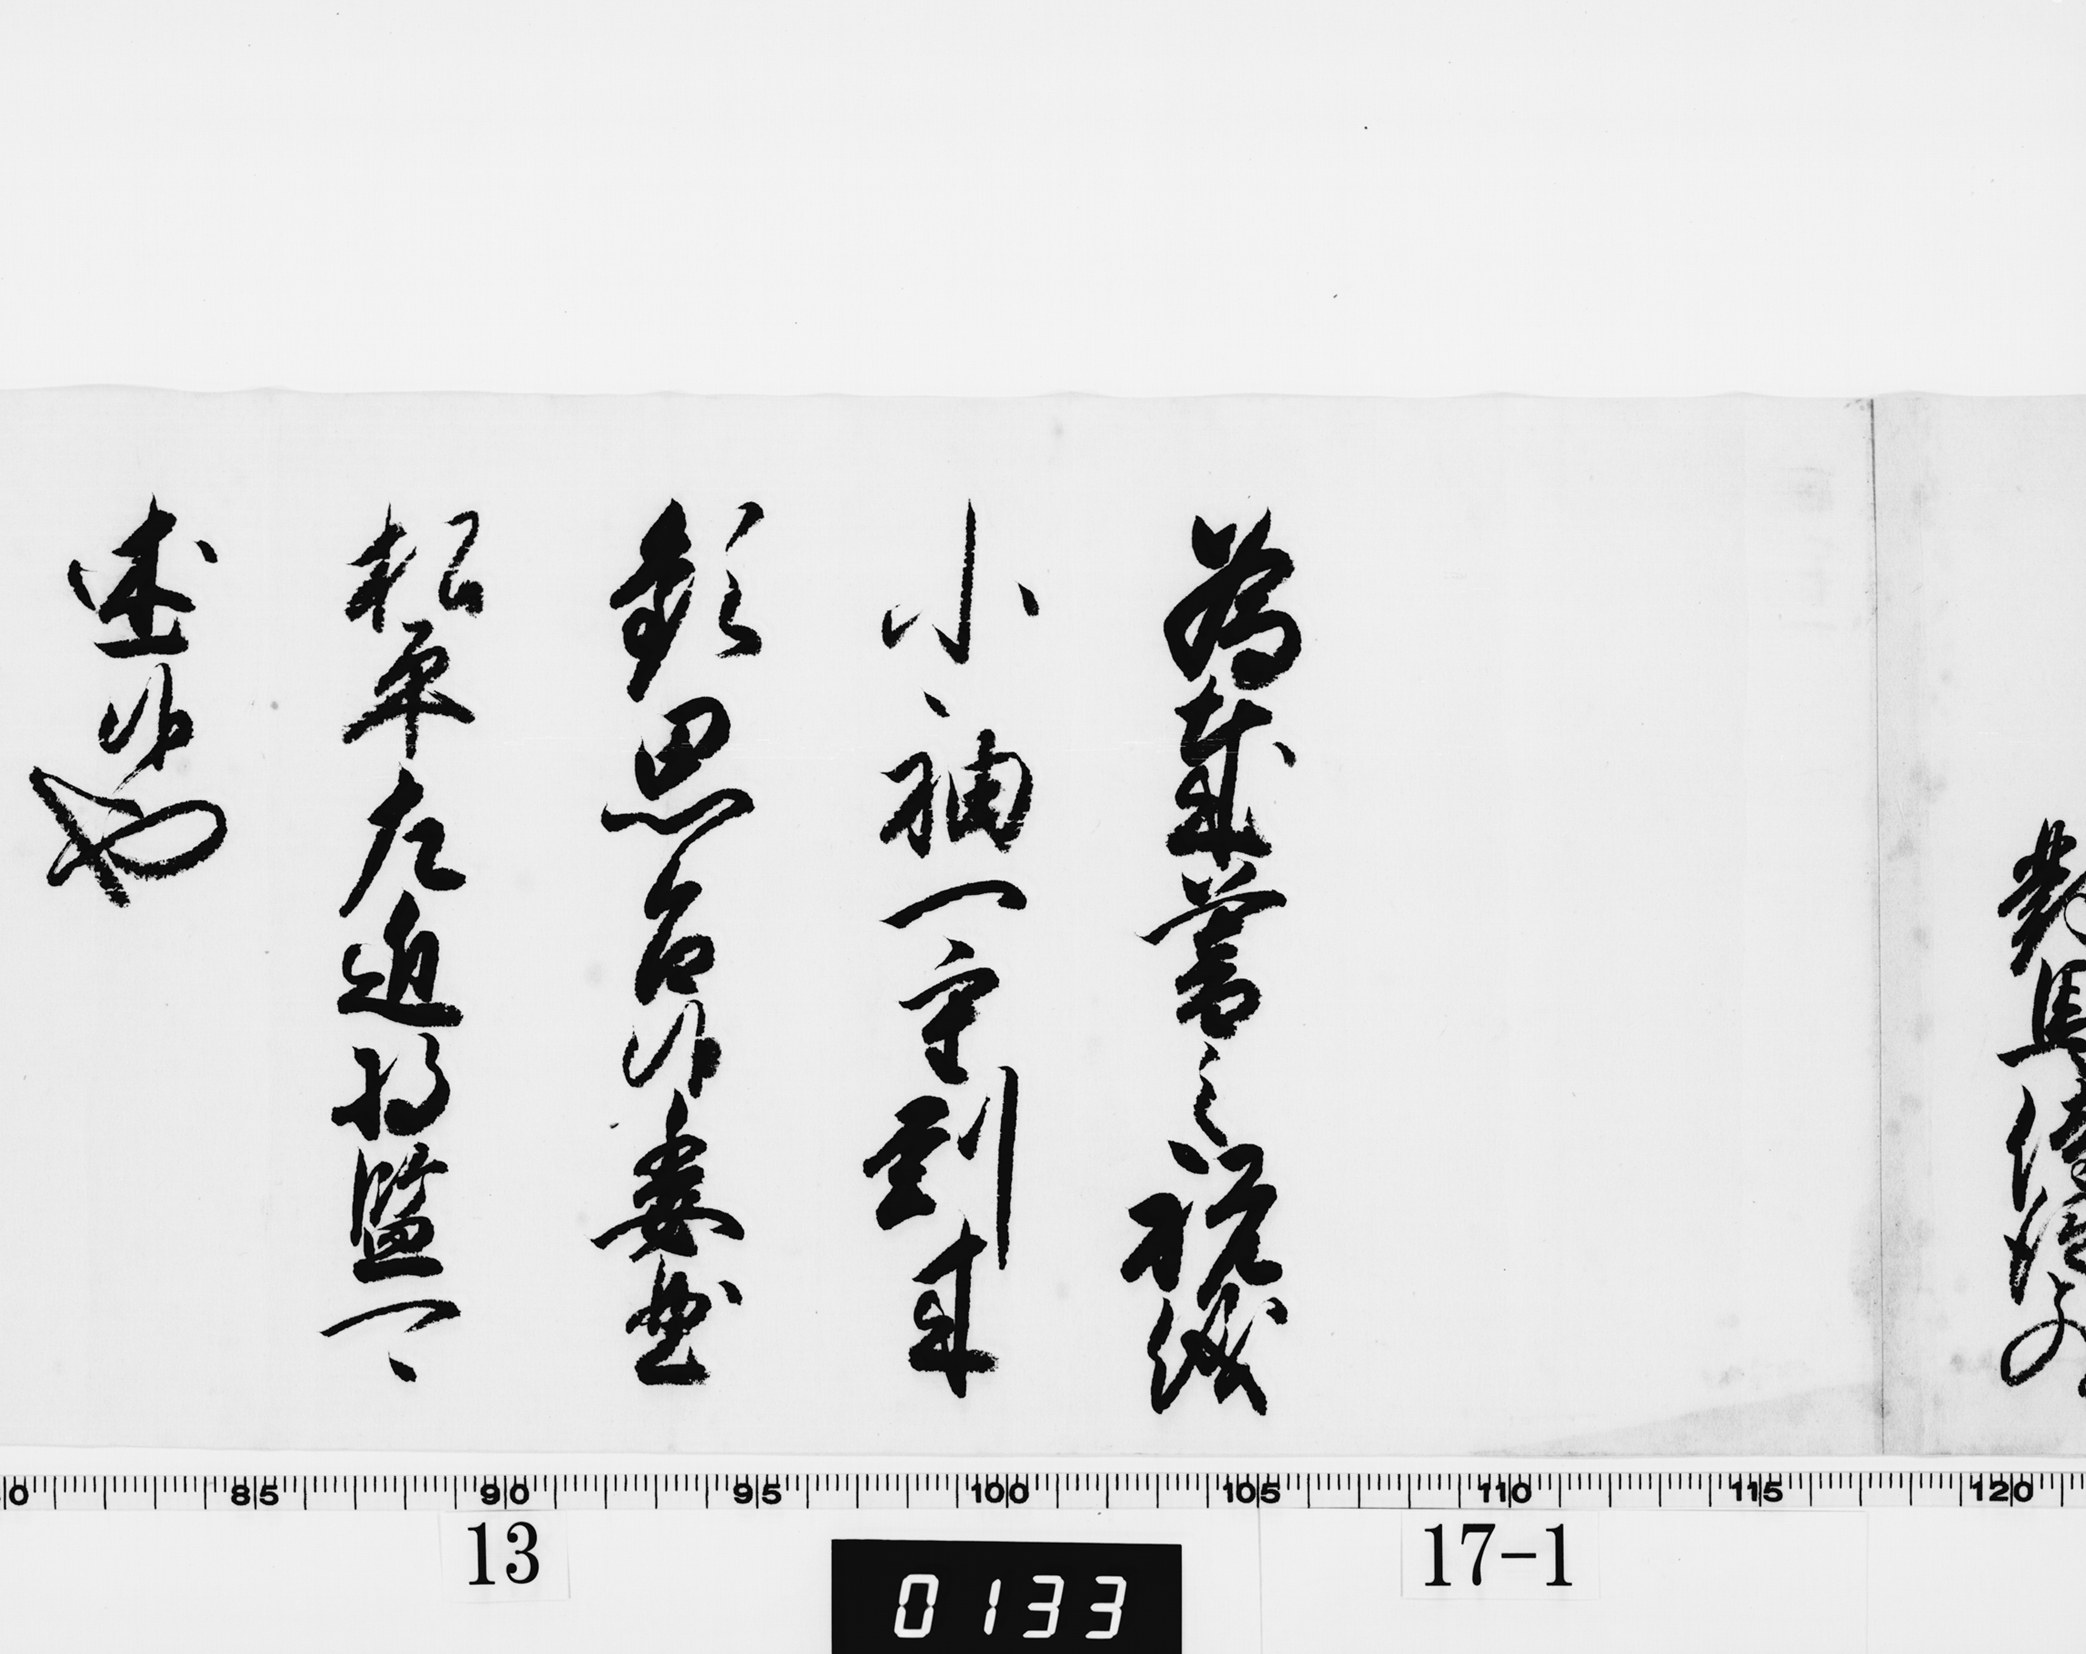 對馬侍従
為歳暮之祝儀
小袖一重到来
歓思召候委曲
松平左近将監可
述候也
85 90 95 100 105 110 115 120
13
0133
17-1